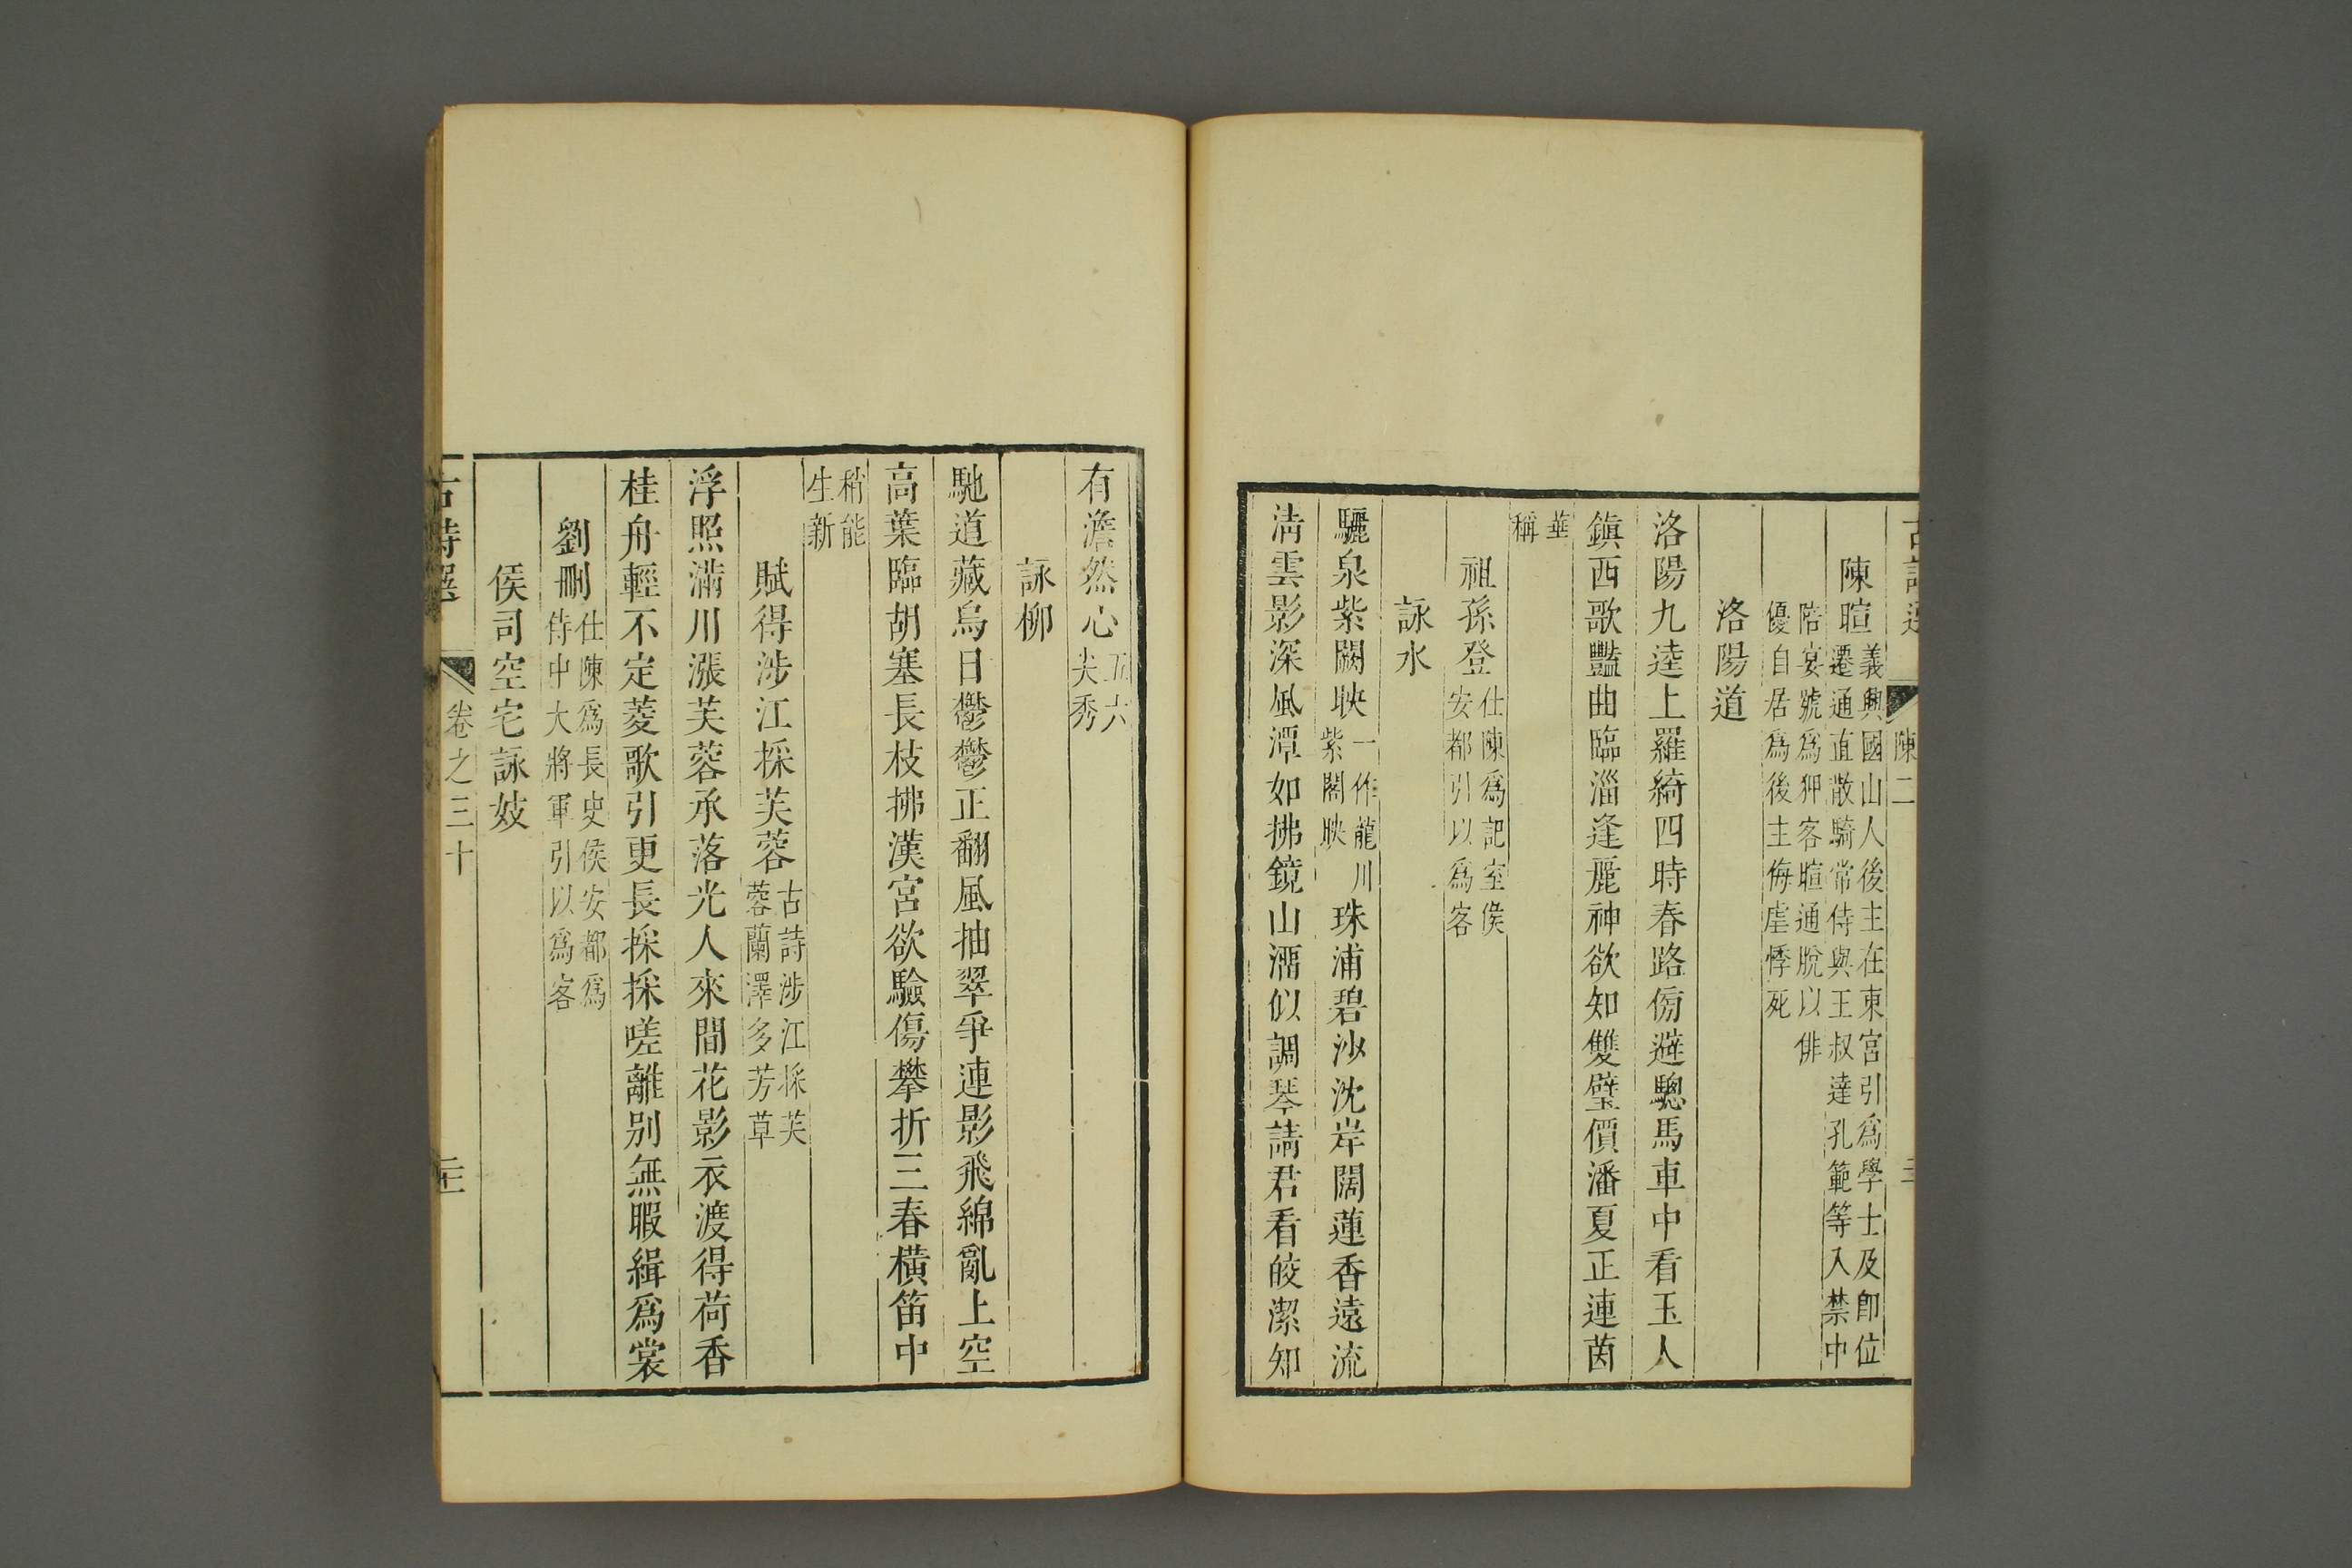 陳二
陳暄義興國山人後主在東宮引爲學士及即位
遷通直散騎常侍與王叔達孔範等入禁中
陪宴號爲狎客暄通脫以俳
優自居爲後主侮虐悸死
洛陽道
洛陽九逵上羅綺四時春路傍避驄馬車中看玉人
鎮西歌豔曲臨淄逢麗神欲知雙璧價潘夏正連茵
華
稱
祖孫登仕陳爲記室侯
安都引以爲客
詠水
驪泉紫闕映一作龍川
紫閣映珠浦碧沙沈岸闊蓮香遠流
清雲影深風潭如拂鏡山溜似調琴請君看皎潔知
有澹然心五六
尖秀
詠柳
馳道藏烏日鬱鬱正翻風抽翠爭連影飛綿亂上空
高葉臨胡塞長枝拂漢宮欲驗傷攀折三春橫笛中
稍能
生新
賦得涉江採芙蓉古詩涉江採芙
蓉蘭澤多芳草
浮照滿川漲芙蓉承落光人來間花影衣渡得荷香
桂舟輕不定菱歌引更長採採嗟離別無暇緝爲裳
劉刪仕陳爲長史侯安都爲
侍中大將軍引以爲客
侯司空宅詠妓
古詩選
卷之三十